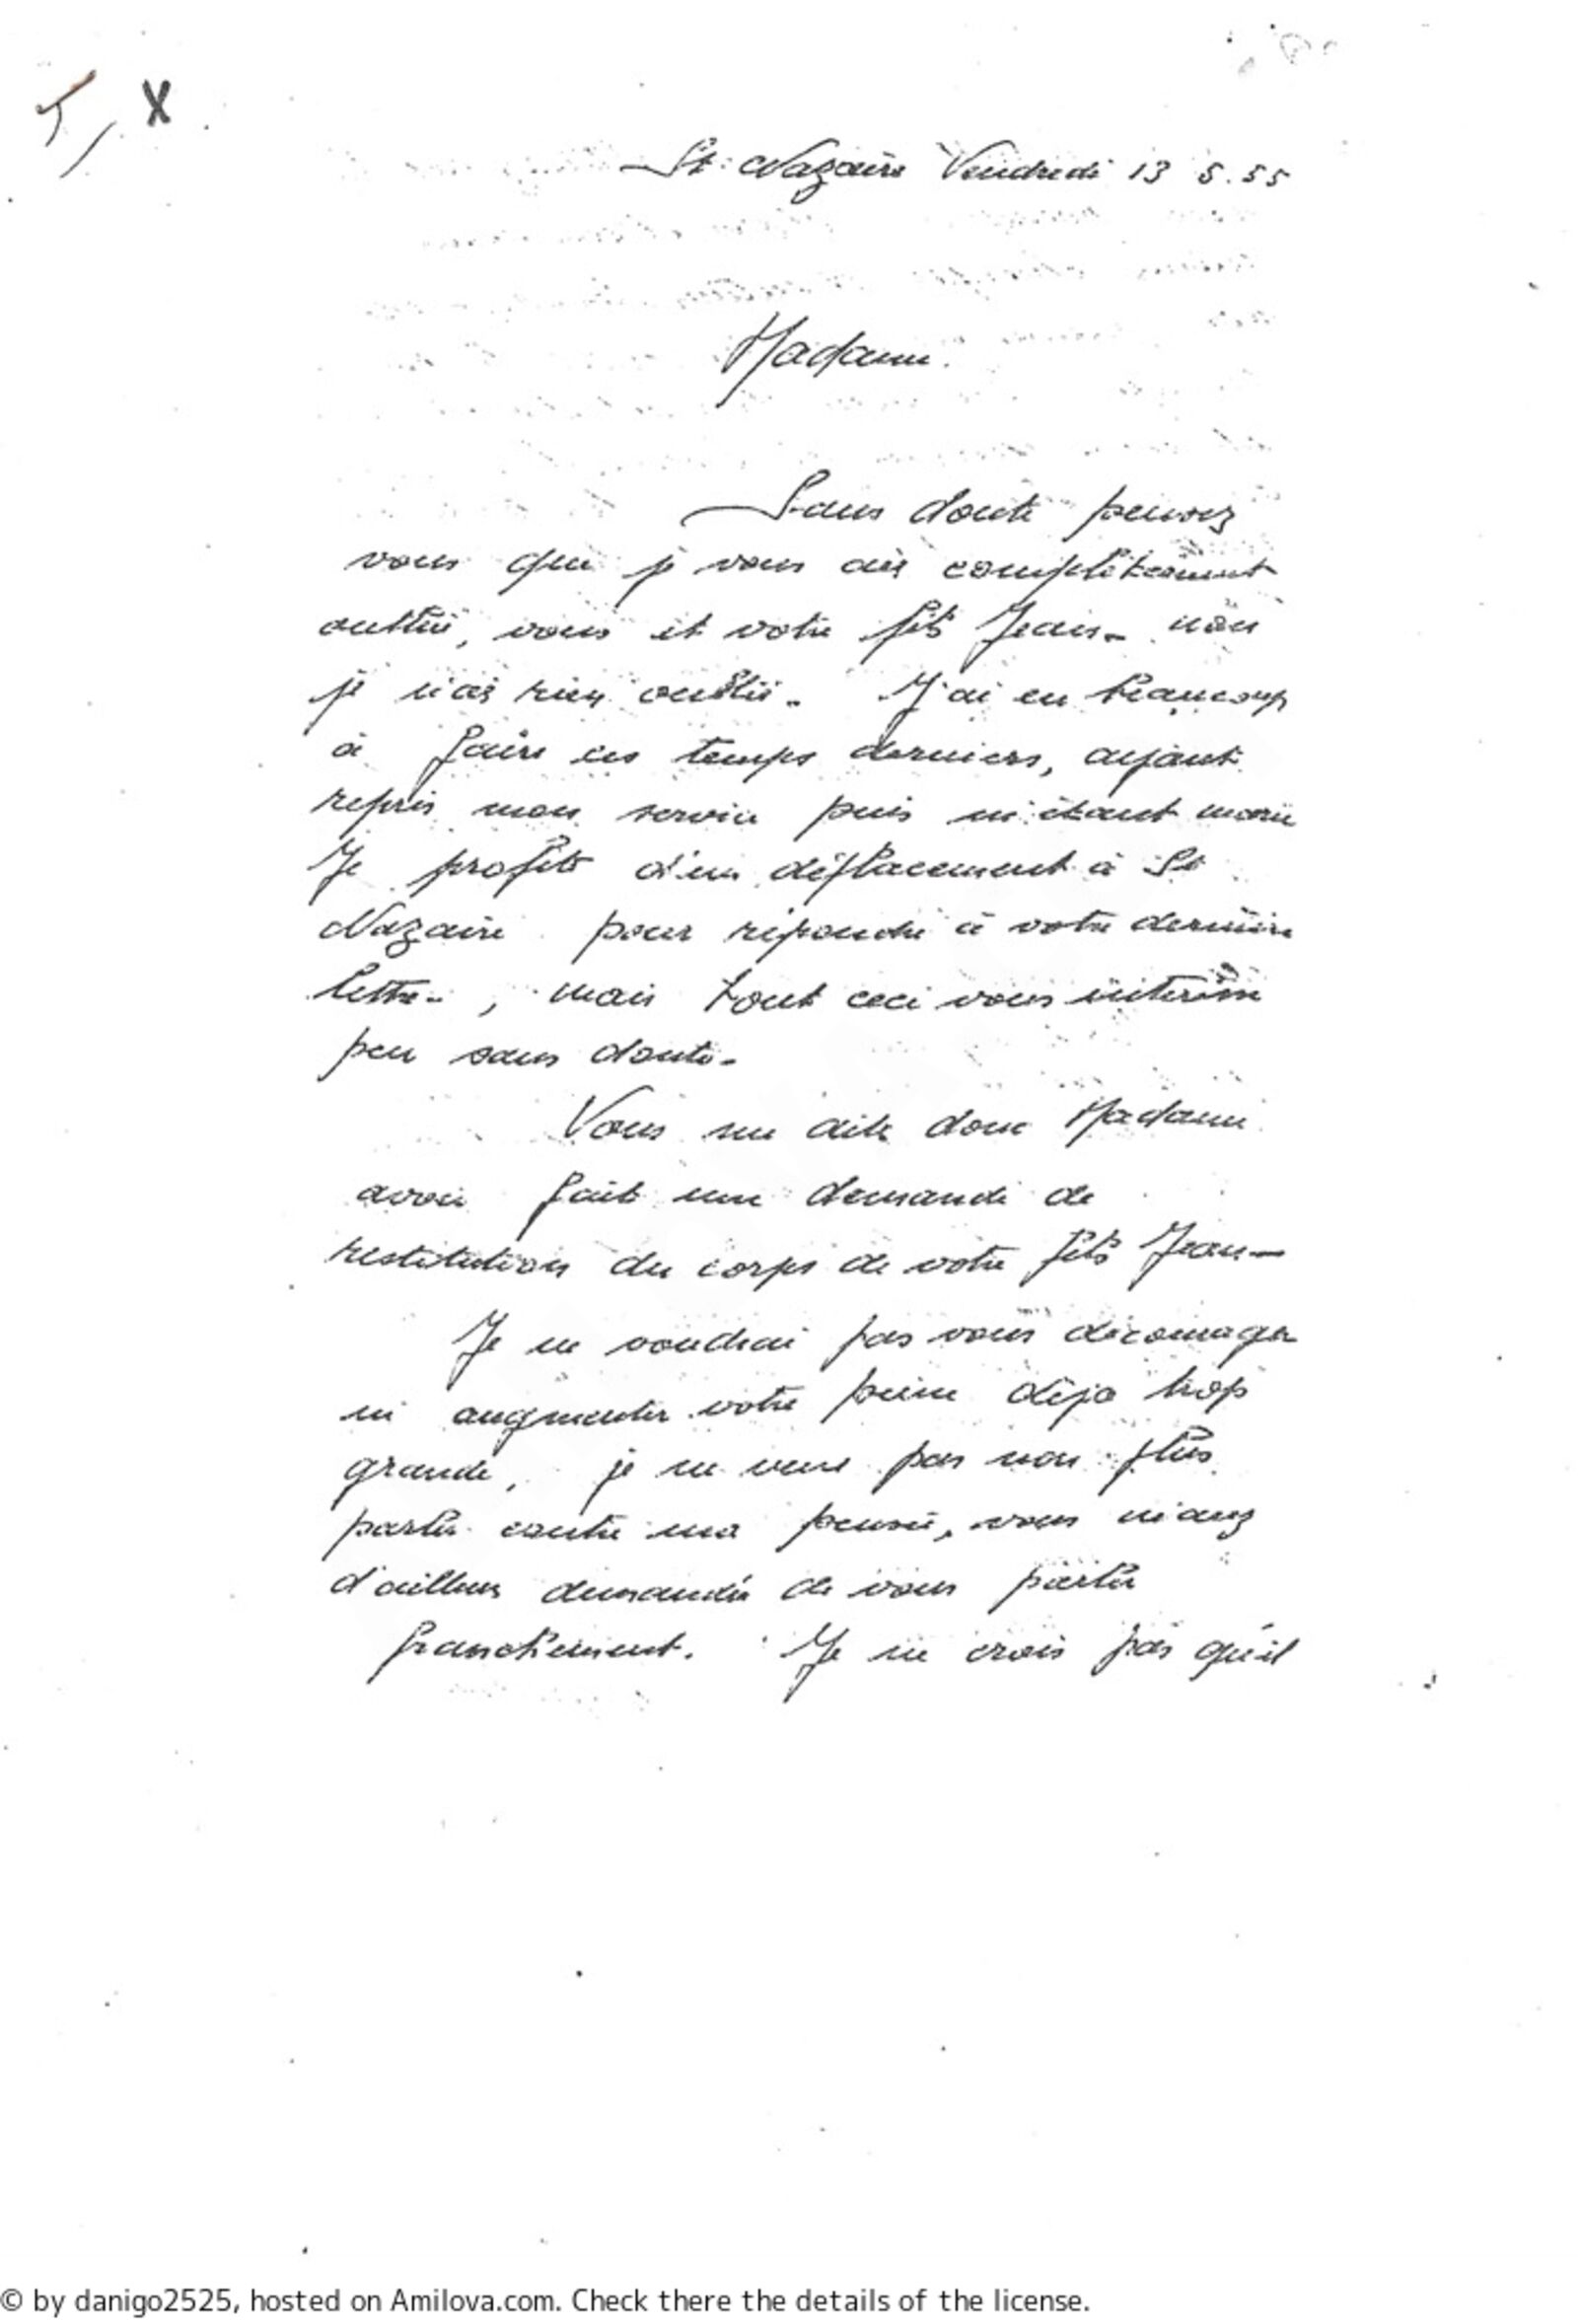 X
St. Nazaire Vendredi 13 5.55
Madame.
Sans doute pensez
vous que je vous ais complètement
oublié, vous et votre fils Jean- non
je n'ai rien oublié. J'ai eu beaucoup
à faire ces temps derniers, ayant
repris mon service puis m'étant marié
Je profite d'un déplacement à St
Nazaire pour répondre à votre dernière
lettre-, mais tout ceci vous intéresse
peu sans doute-
Vous me dite donc Madame
avoir fait une demande de
restitution du corps de votre fils Jean-
Je ne voudrai pas vous décourager
ni augmenter votre peine déja trop
grande, je ne veux pas non plus
parler contre ma pensée, vous m'avez
d'ailleurs demandée de vous parler
franchement. Je ne crois pas qu'il
© by danigo2525, hosted on Amilova.com. Check there the details of the license.